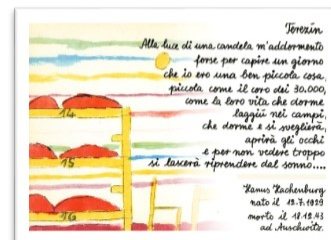 Terezín
Alla luce di una candela m'addormento
forse per capire un giorno
che io ero una ben piccola cosa,
piccola come il coro dei 30.000,
come la loro vita che dorme
laggiù nei campi,
che dorme e si sveglierà,
aprirà gli occhi
e per non vedere troppo
si lascerà riprendere dal sonno....
Hanus Hachenburg
nato il 12.7.1929
morto il 18.12.43
ad Auschwitz.
14
15
16